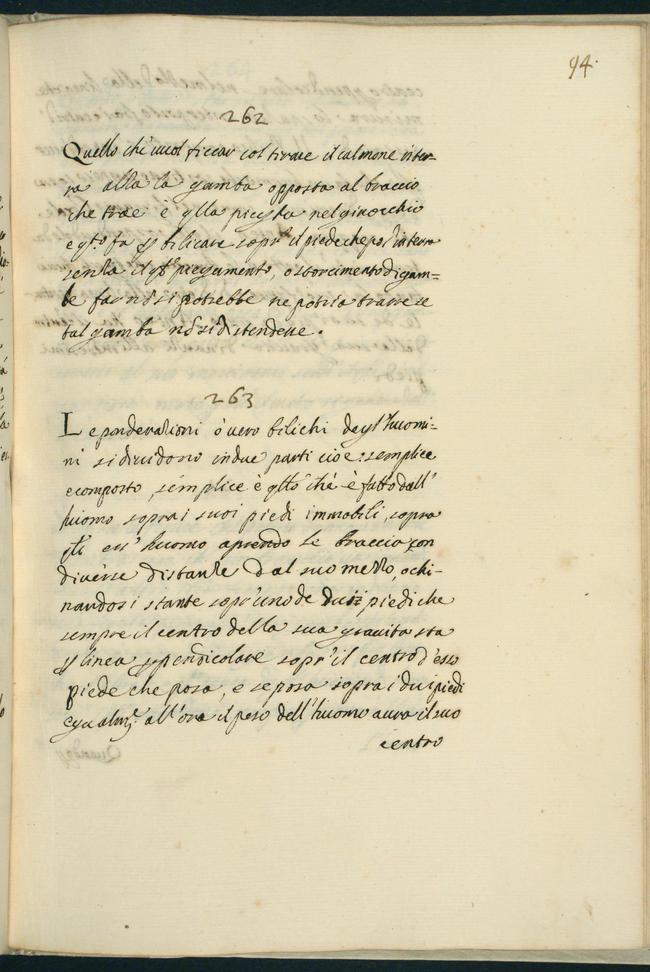 94.
262
Quello che vuol ficcar col tirare il calmone inter-
ra alza la gamba opposta al braccio
che trae è qlla piegata nel ginocchio
e qto fa p bilicare sopra il piede che posa interra
senza il qle piegamento, o storcimento di gam=
be far nõ si potrebbe ne potria trarre se
tal gamba nõ si distendesse.
263
Le ponderationi ò vero bilichi degl'huomi-
ni si dividono in due parti cioe: semplice
e composto, semplice è qllo che è fatto dall'
huomo sopra i suoi piedi immobili, sopra
qli ess' huomo aprendo le braccia con
diverse distantie dal suo mezzo, o chi-
nandosi stante sopr'uno de piedi che
sempre il centro della sua gravita sta
p linea ppendicolare sopr'il centro d'esso
piede che posa, e se posa sopra i dui piedi
equalmte. all'ora il peso dell'huomo avra il suo
centro